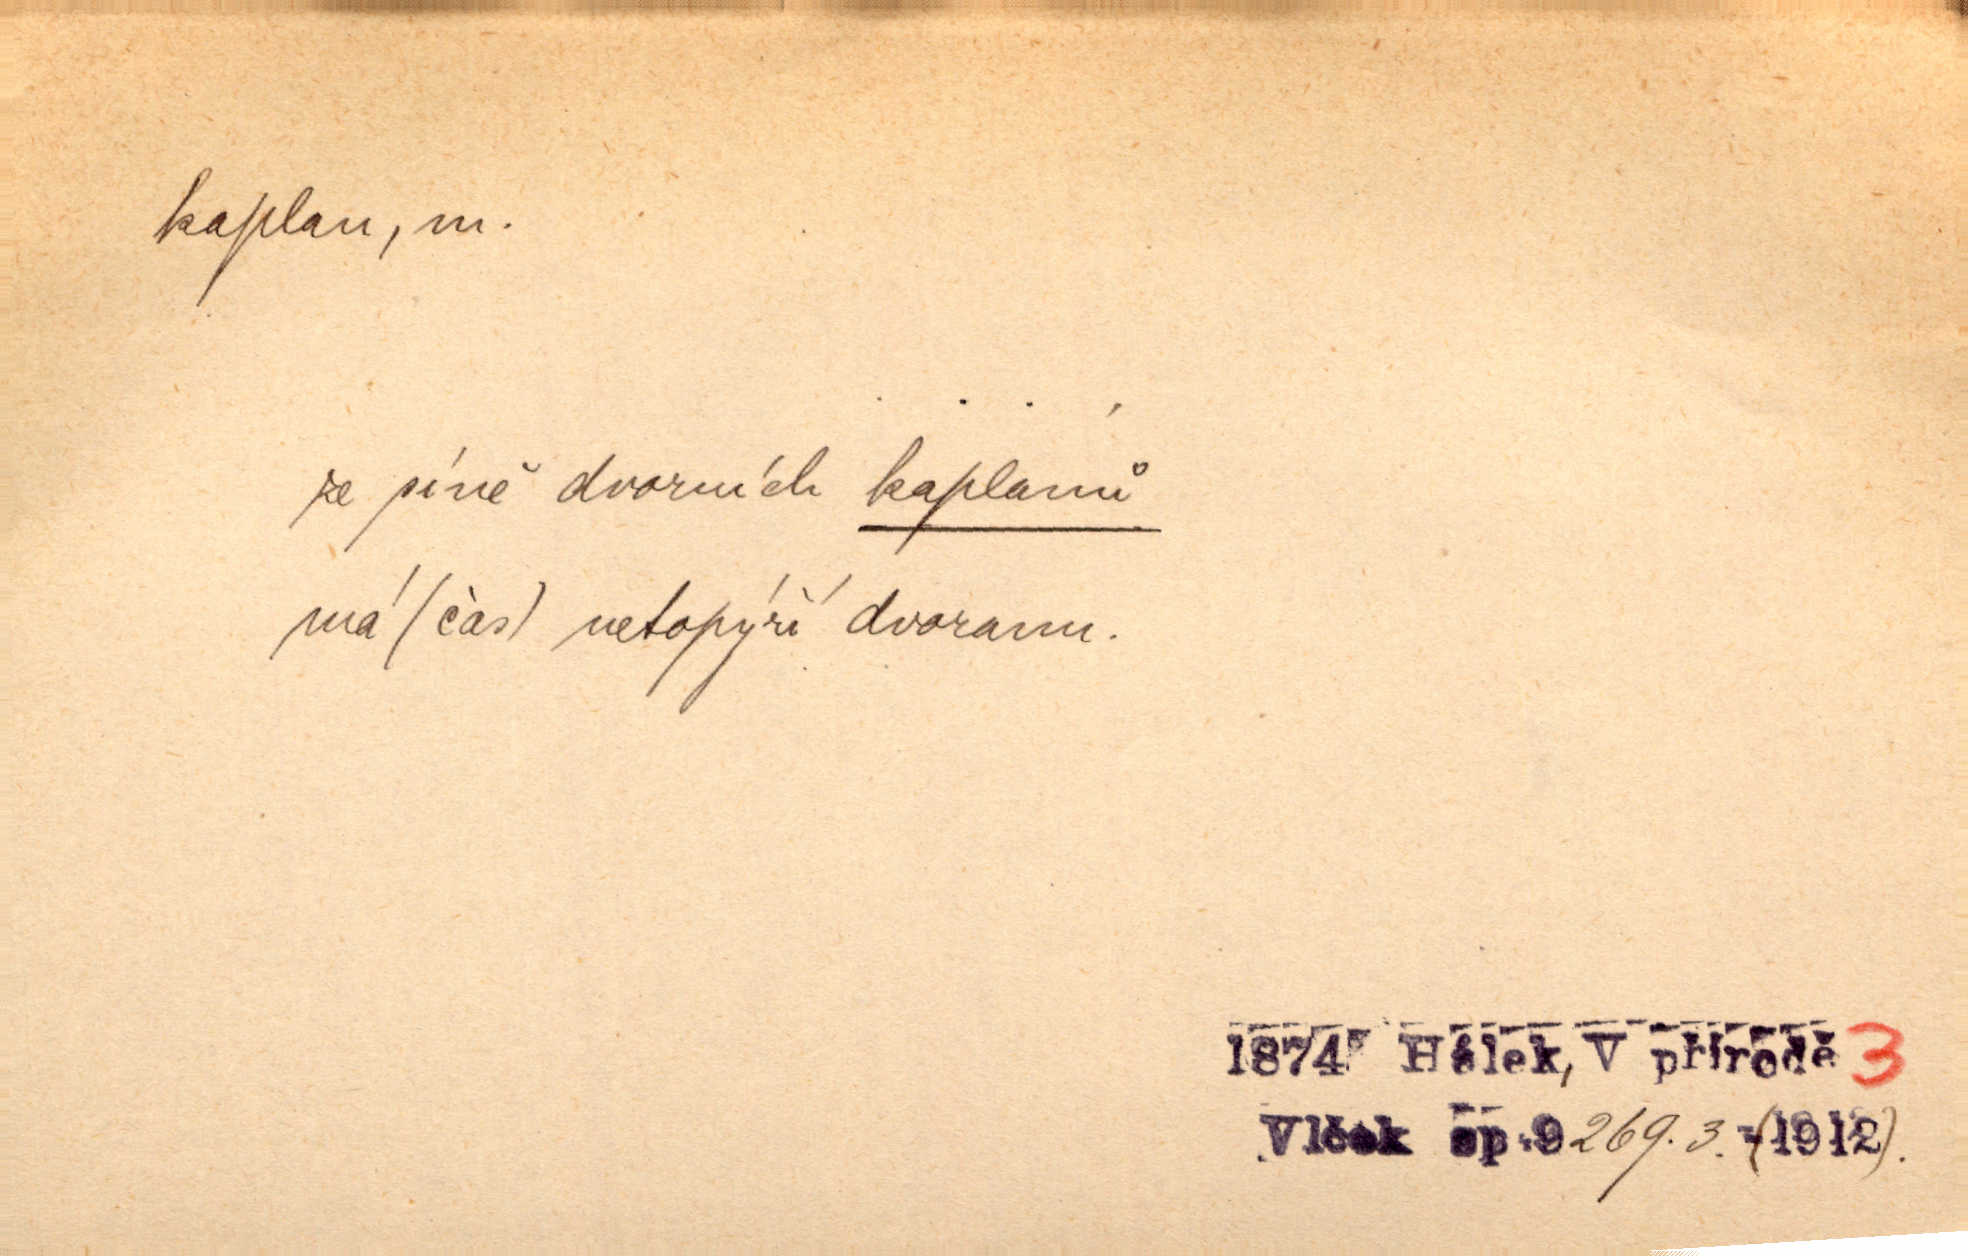 kaplan, m.
ze síně dvorních kaplanů
má (čas) netopýří dvoranu.
1874 Hálek, V přírodě 3
Vlček sp. 9 269. 3. (1912).